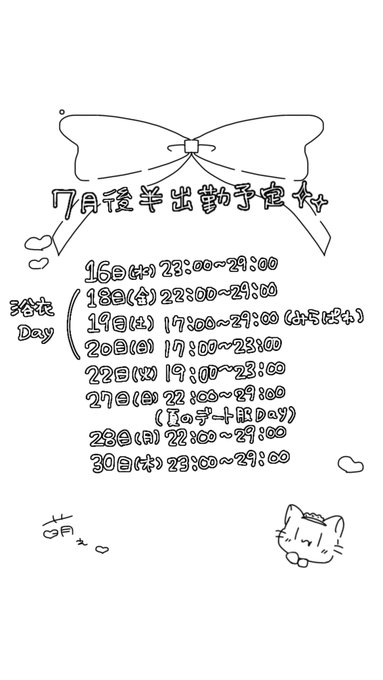 7月後半出勤予定
16日(水)23:00~29:00
浴衣Day
18日(金)22:00~29:00
19日(土)17:00~29:00(みらぱれ)
20日(日)17:00~23:00
22日(火)19:00~23:00
27日(日)22:00~29:00
(夏のデート服Day)
28日(月)22:00~29:00
30日(水)23:00~29:00